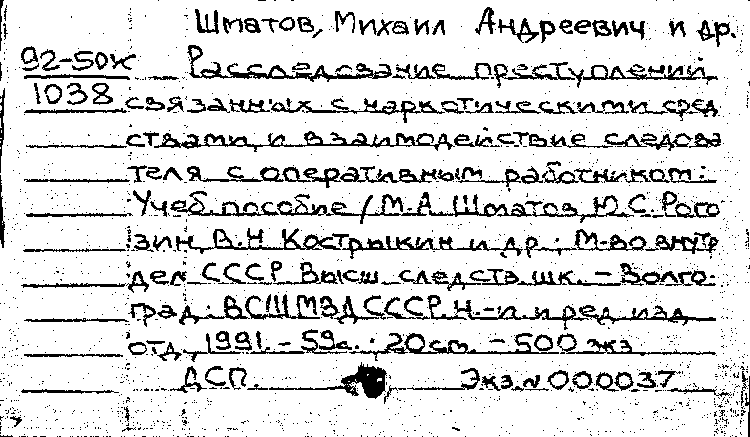 Шматов, Михаил Андреевич и др.
92-50к Расследование преступлений,
1038 связанных с наркотическими сред
ствами, и взаимодействие следова
теля с оперативным работником:
Учеб. пособие / М.А. Шматов, Ю.С. Рого
зин, В.Н. Кострыкин и др.; М-во внутр
дел СССР. Высш. следств. шк. – Волго-
град: ВСШ МВД СССР. Н.-и. и ред изд
отд., 1991. – 59с.; 20см. – 500 экз.
ДСП. Экз. N 000037